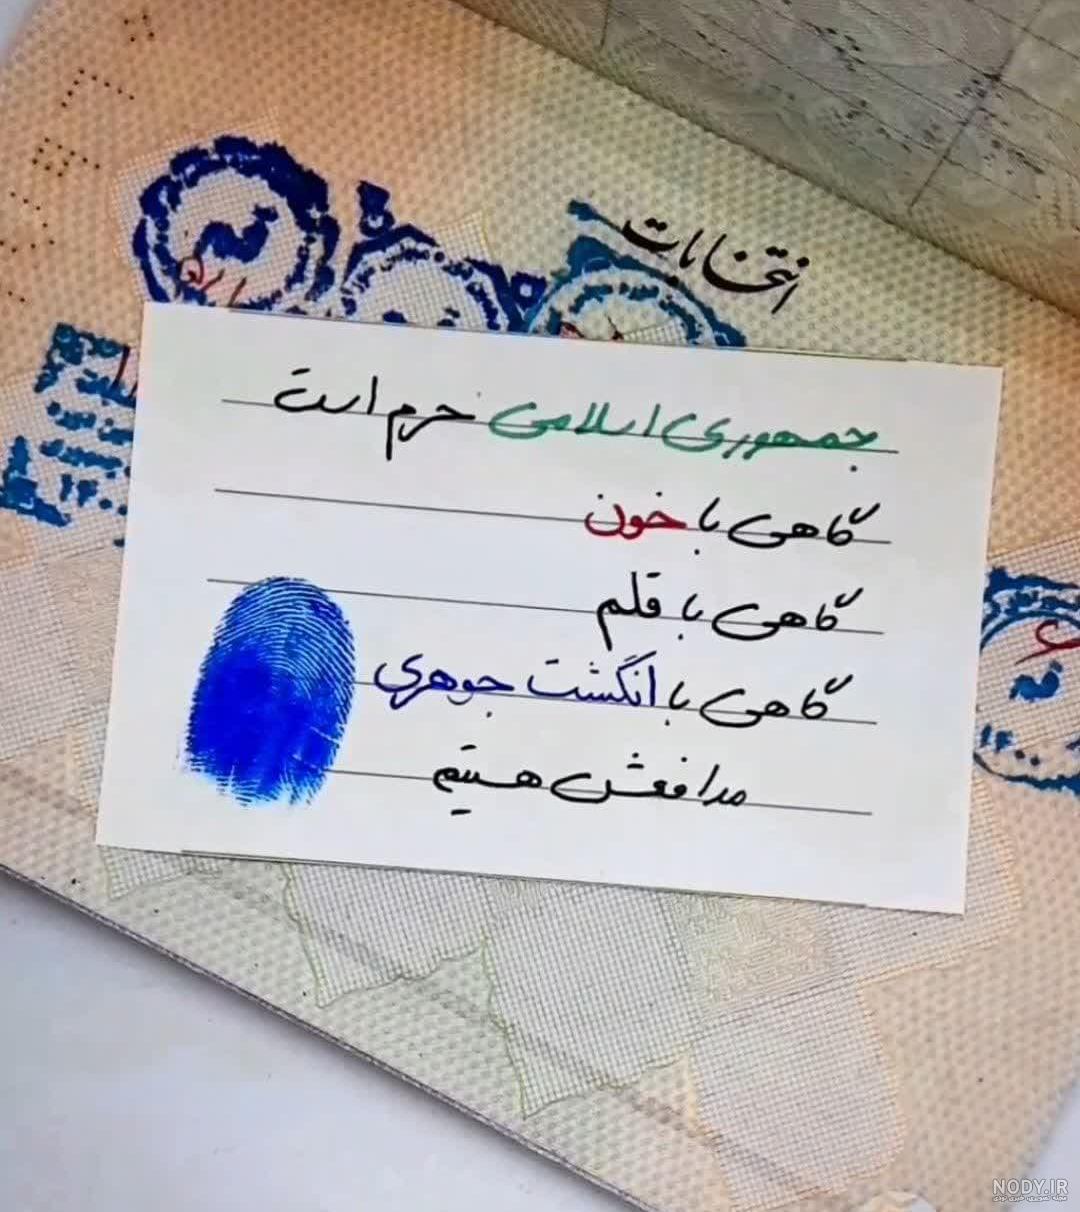 انتخابات
جمهوری اسلامی حرم است
گاهی با خون
گاهی با قلم
گاهی با انگشت جوهری
مدافعش هستیم
۱۴۰۰
NODY.IR